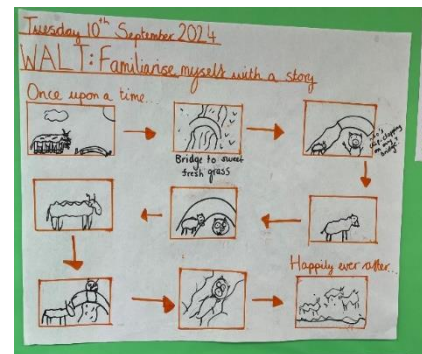 Tuesday 10th September 2024
WALT: Familiarise myself with a story
Once upon a time...
Bridge to sweet
fresh grass
Who's
trip-trapping
on my
bridge?
Happily ever after...